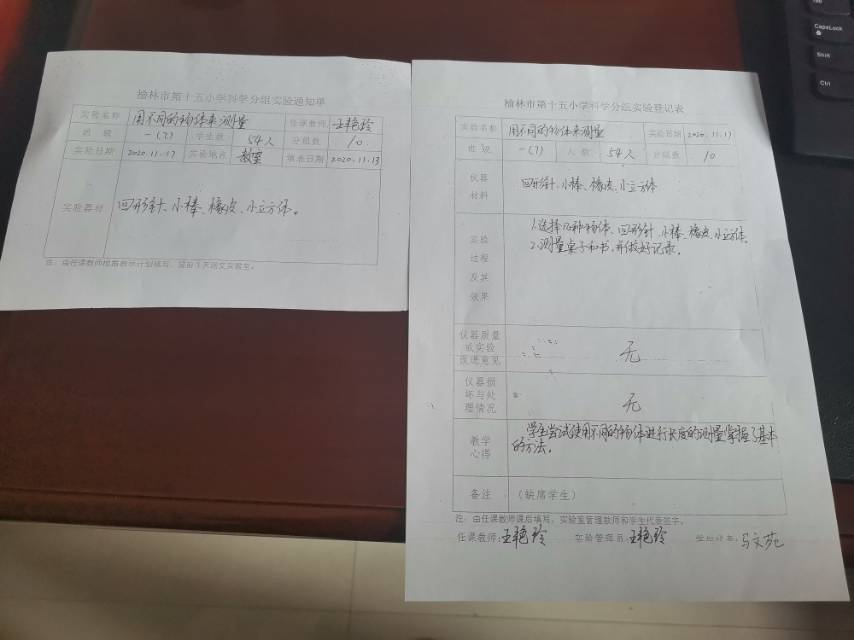 榆林市第十五小学科学分组实验通知单
实验名称 用不同的物体来测量 任课教师 王艳玲
班级 一(7) 学生数 54人 分组数 10
实验日期 2020.11.17 实验地点 教室 填表日期 2020.11.13
实验器材 回形针、小棒、橡皮、小立方体。
注:由任课教师根据教学计划填写,提前3天送交实验室。
榆林市第十五小学科学分组实验登记表
实验名称 用不同的物体来测量 实验日期 2020.11.17
班级 一(7) 人数 54人 分组数 10
仪器材料 回形针、小棒、橡皮、小立方体
实验过程及其效果 1.选择几种物体、回形针、小棒、橡皮、小立方体。
2.测量桌子和书,并做好记录。
仪器质量或实验改进意见 无
仪器损坏与处理情况 无
教学心得 学生尝试使用不同的物体进行长度的测量掌握了基本
的方法。
备注 (缺席学生)
注:由任课教师课后填写,实验室管理教师和学生代表签字。
任课教师:王艳玲 实验管理员:王艳玲 学生代表:马文苑
CapsLock
Shift
Ctrl